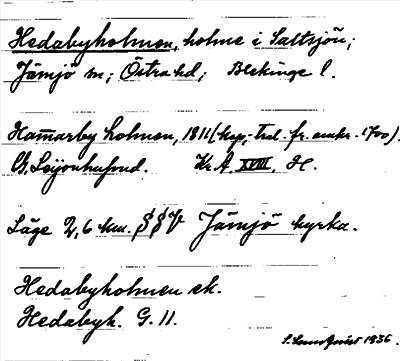 Hedabyholmen, holme i Saltsjön;
Jämjö sn; Östra hd; Blekinge l.
Hamarby holmen, 1811 (kop. trol. fr. omkr. 1700).
G. Leijonhufvud. Kr.A. XVIII, H.
Läge 2,6 km. SSV Jämjö kyrka.
Hedabyholmen ek.
Hedabyh. G. 11.
1936.